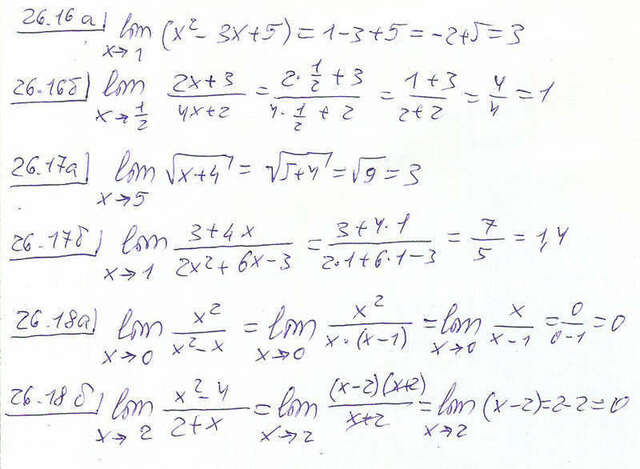 26.16 а) lim x→1 (x² - 3x + 5) = 1 - 3 + 5 = -2 + 5 = 3
26.16б) lim x→1/2 (2x + 3)/(4x + 2) = (2·1/2 + 3)/(4·1/2 + 2) = (1 + 3)/(2 + 2) = 4/4 = 1
26.17а) lim x→5 √(x + 4) = √(5 + 4) = √9 = 3
26.17б) lim x→1 (3 + 4x)/(2x² + 6x - 3) = (3 + 4·1)/(2·1 + 6·1 - 3) = 7/5 = 1,4
26.18а) lim x→0 x²/(x² - x) = lim x→0 x²/(x·(x - 1)) = lim x→0 x/(x - 1) = 0/(0 - 1) = 0
26.18 б) lim x→2 (x² - 4)/(2 + x) = lim x→2 (x - 2)(x + 2)/(x + 2) = lim x→2 (x - 2) = 2 - 2 = 0